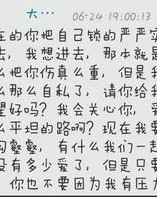 大… 06-24 19:00:13
在的你把自己锁的严严实
去，我想进去，那本就是
么把你伤真么重，但是我
么那么自私了，请你给我
望好吗？我会关心你，爱
么平坦的路啊？现在我要
沟壑壑，有什么我们一起
没有多少爱了，但是只要
你也不要因为我有压力